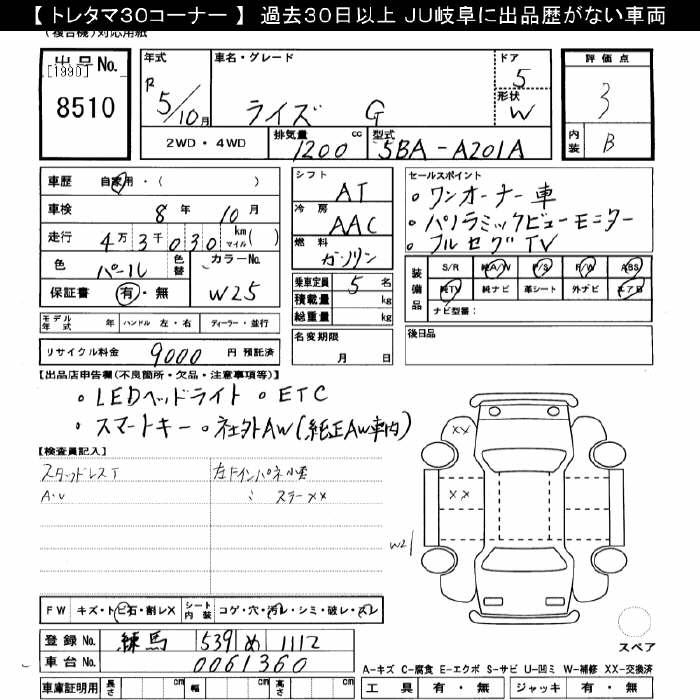 【 トレタマ30コーナー 】 過去30日以上 JU岐阜に出品歴がない車両
(複合機)対応用紙
出品No.
[1990]
8510
年式
R 5/10月
車名・グレード
ライズ G
ドア
5
形状
W
評価点
3
内装
B
2WD・4WD
排気量
1200 cc
型式
5BA-A201A
車歴 自家用・( )
車検 8年 10月
走行 4万3千030 km マイル ( )
色 パール 色替
カラーNo.
W25
保証書 有・無
シフト
AT
冷房
AAC
燃料
ガソリン
乗車定員 5 名
積載量 kg
総重量 kg
セールスポイント
。ワンオーナー車
。パノラミックビューモニター
。フルセグTV
装備品
S/R 純A/W P/S P/W ABS
純TV 純ナビ 革シート 外ナビ エアB
ナビ型番:
モデル年式 年 ハンドル 左・右 ディーラー・並行
名変期限
月 日
後日品
リサイクル料金 9000 円 預託済
【出品店申告欄(不良箇所・欠品・注意事項等)】
。LEDヘッドライト 。ETC
。スマートキー 。社外AW(純正AW車内)
【検査員記入】
スタッドレスT
A・U
左Fインパネ小
〃 ステーXX
XX
XX
W2
FW キズ・トビ石・割レX
シート内装 コゲ・穴・汚レ・シミ・破レ・スレ
登録No. 練馬 539 め 1112
車台No. 0061360
車庫証明用 長さ cm 幅 cm 高さ cm
スペア
A-キズ C-腐食 E-エクボ S-サビ U-凹ミ W-補修 XX-交換済
工具 有・無 ジャッキ 有・無